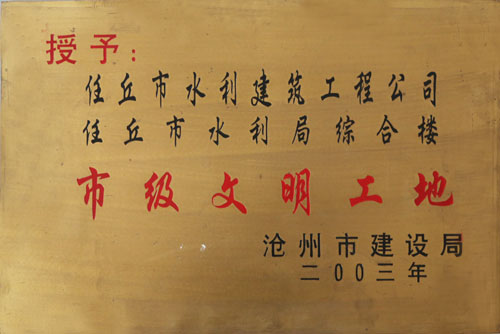 授予：
任丘市水利建筑工程公司
任丘市水利局综合楼
市级文明工地
沧州市建设局
二00三年